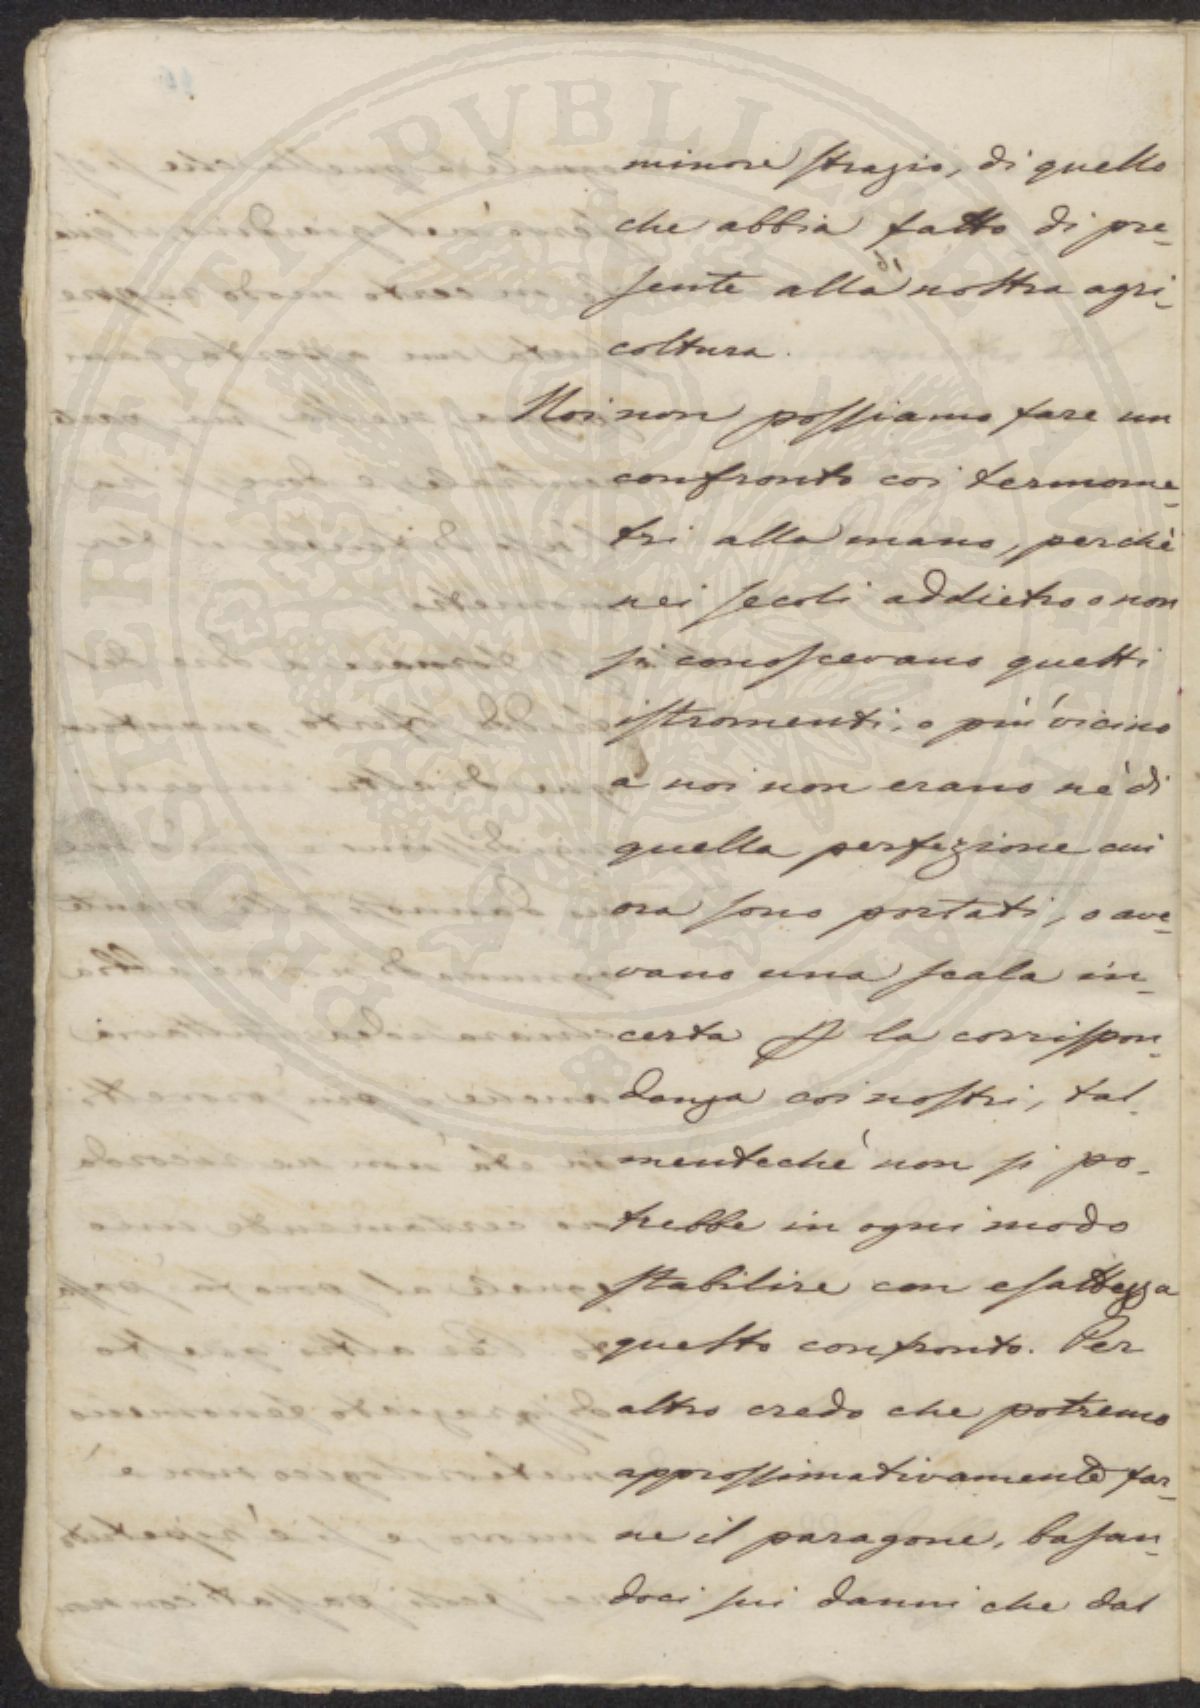 minore strazio, di quello
che abbia fatto di pre-
sente alla nostra agri-
coltura.
Noi non possiamo fare un
confronto coi termome-
tri alla mano, perchè
nei secoli addietro o non
si conoscevano questi
istromenti, o più vicino
a noi non erano nè di
quella perfezione cui
ora sono portati, o ave-
vano una scala in-
certa la corrispon-
danza coi nostri, tal-
mentechè non si po-
trebbe in ogni modo
stabilire con esattezza
questo confronto. Per
altro credo che potremo
approssimativamente far-
ne il paragone, basan-
doci sui danni che dal
PROSPERITATI PVBLICAE AVGENDAE